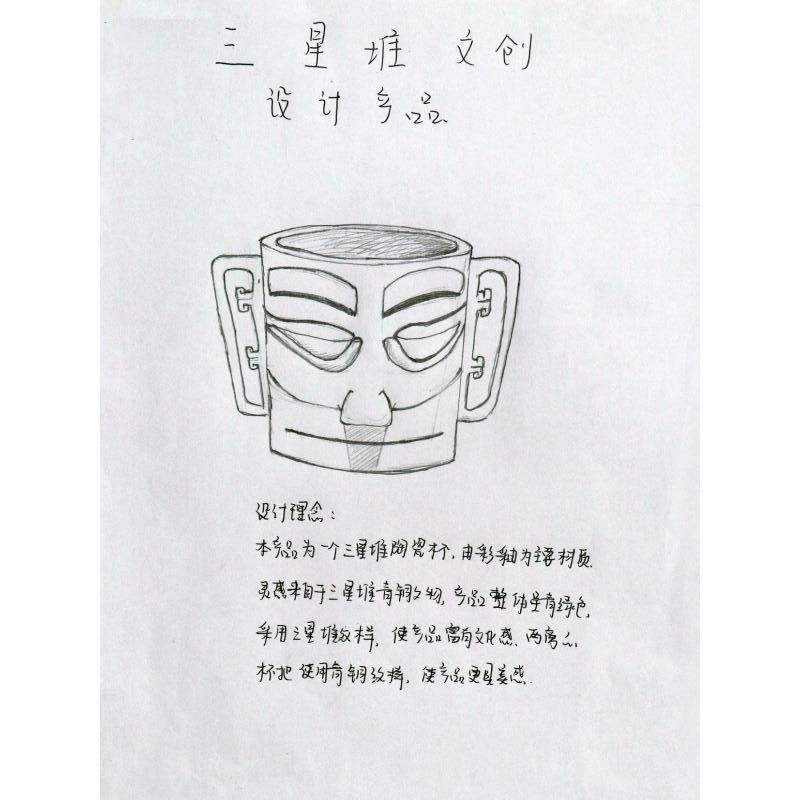 三 星 堆 文创
设 计 产品
设计理念：
本产品为一个三星堆陶瓷杯，由彩釉为主要材质.
灵感来自于三星堆青铜文物，产品整体呈青绿色，
采用三星堆纹样，使产品富有文化感、两旁
杯把使用青铜纹样，使产品更具美感.